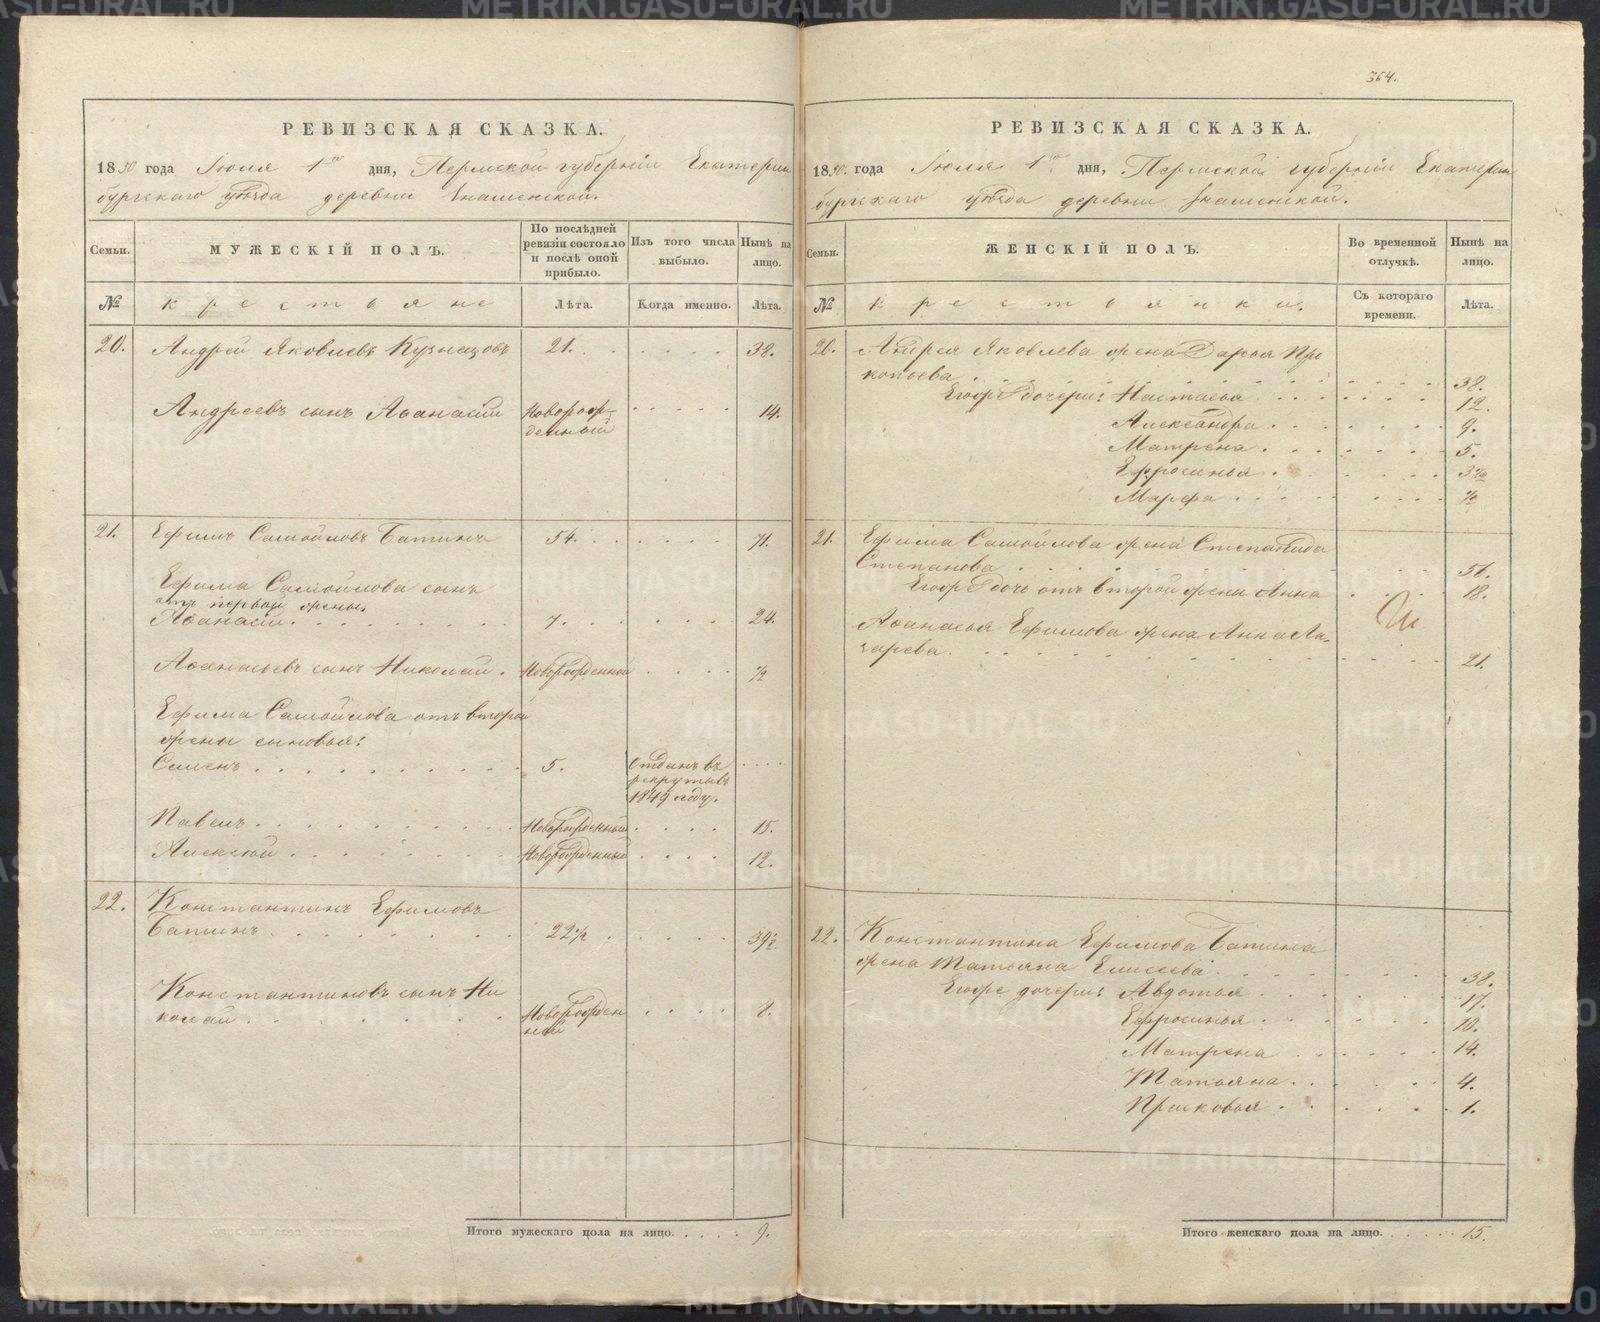 364.
РЕВИЗСКАЯ СКАЗКА.
1850 года Іюля 1го дня, Пермской губерніи Екатерин
бургскаго уѣзда деревни Знаменской.
Семьи.
МУЖЕСКІЙ ПОЛЪ.
По послѣдней ревизіи состояло и послѣ оной прибыло.
Изъ того числа выбыло.
Нынѣ на лицо.
№
крестьяне
Лѣта.
Когда именно.
Лѣта.
20. Андрей Яковлевъ Кузнецовъ 21. 38.
Андреевъ сынъ Аѳанасій Новорож-
денный 14.
21. Ефимъ Самойловъ Батинъ 54. 71.
Ефима Самойлова сынъ
отъ первой жены.
Аѳанасій. 7. 24.
Аѳанасьевъ сынъ Николай. Новорожденной ½
Ефима Самойлова отъ второй
жены сыновья:
Семенъ 5. Отданъ въ
рекруты въ
1849 году.
Павелъ Новорожденный 15.
Алексѣй Новорожденный 12.
22. Константинъ Ефимовъ
Батинъ 22½ 39½.
Константиновъ сынъ Ни
колай. Новорожден
ной 8.
Итого мужескаго пола на лицо. 9.
РЕВИЗСКАЯ СКАЗКА.
1850. года Іюля 1го дня, Пермской губерніи Екатерин
бургскаго уѣзда деревни Знаменской.
Семьи.
ЖЕНСКІЙ ПОЛЪ.
Во временной отлучкѣ.
Нынѣ на лицо.
№
крестьянки.
Съ котораго времени.
Лѣта.
20. Андрея Яковлева жена Дарья Про
копьева 38.
Егожъ дочери: Настасья 12.
Александра 9.
Матрена 5.
Ефросинья 3
Марфа
21. Ефима Самойлова жена Степанида
Степанова 51.
Егожъ дочь отъ второй жены Анна 18.
Аѳанасья Ефимова жена Анна Ла-
зарева. 21.
22. Константина Ефимова Батина
жена Татьяна Елисеева 38.
Егоже дочери: Авдотья 17.
Ефросинья 10.
Матрена 14.
Татьяна 4.
Прасковья 1.
Итого женскаго пола на лицо. 15.
METRIKI.GASO-URAL.RU